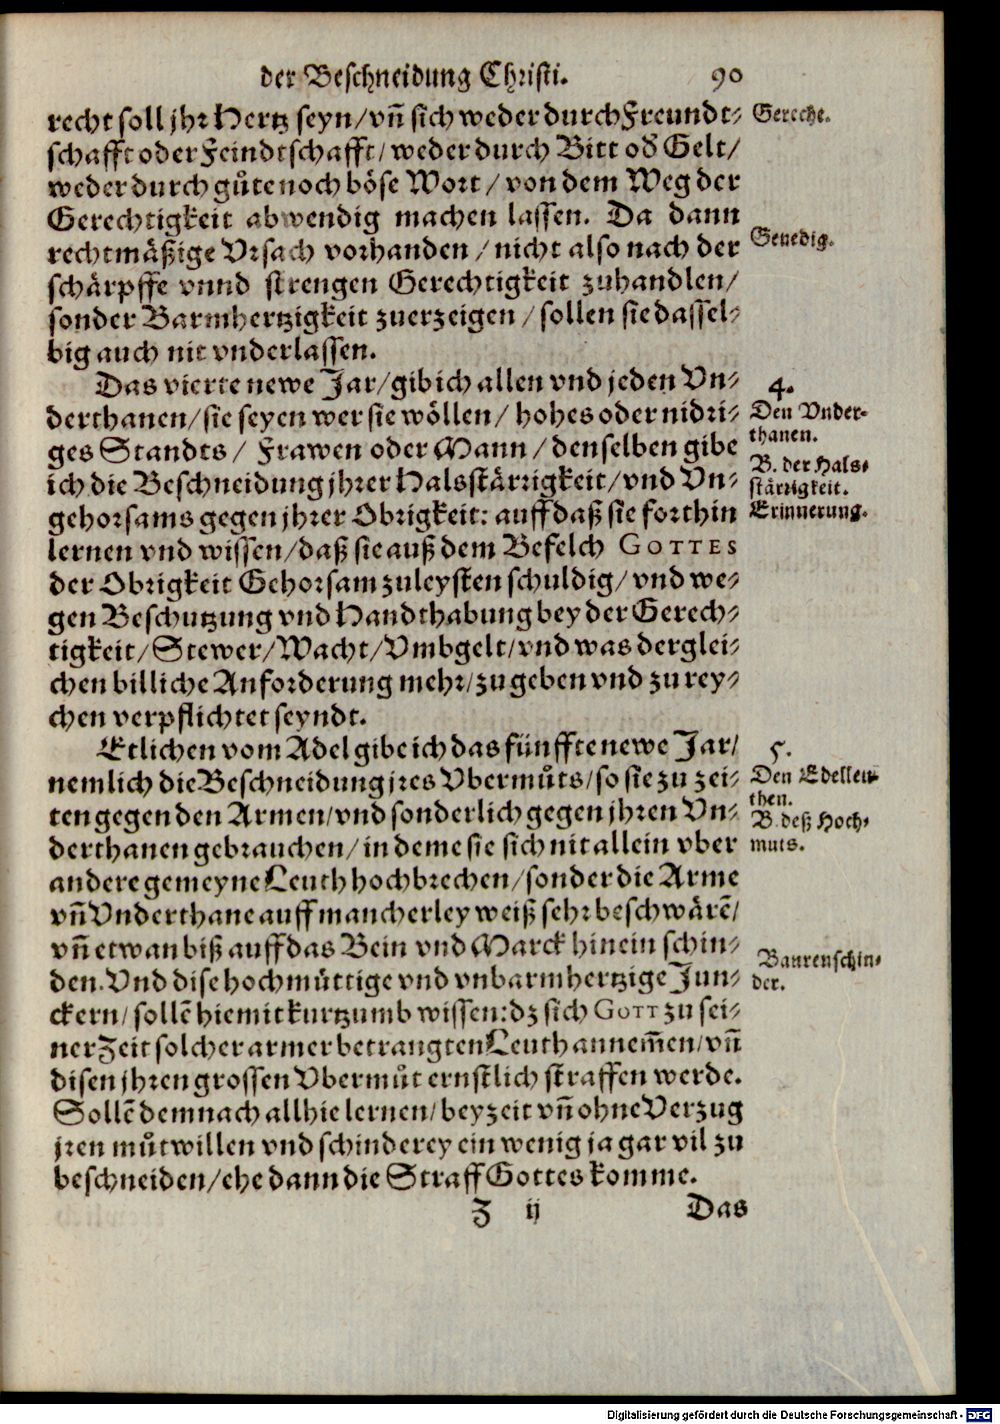 der Beschneidung Christi. 90
recht soll jhr Hertz seyn/vñ sich weder durch Freundt⸗
schafft oder Feindtschafft/weder durch Bitt od̕ Gelt/
weder durch gůte noch böse Wort/von dem Weg der
Gerechtigkeit abwendig machen lassen. Da dann
rechtmäßige Vrsach vorhanden/nicht also nach der
schärpffe vnnd strengen Gerechtigkeit zuhandlen/
sonder Barmhertzigkeit zuerzeigen/sollen sie dassel⸗
big auch nit vnderlassen.
Gereche.
Genedig.
Das vierte newe Jar/gib ich allen vnd jeden Vn⸗
derthanen/sie seyen wer sie wöllen/hohes oder nidri⸗
ges Standts/Frawen oder Mann/denselben gibe
ich die Beschneidung jhrer Halsstärrigkeit/vnd Vn⸗
gehorsams gegen jhrer Obrigkeit: auff daß sie forthin
lernen vnd wissen/daß sie auß dem Befelch GOTTES
der Obrigkeit Gehorsam zuleysten schuldig/vnd we⸗
gen Beschutzung vnd Handthabung bey der Gerech⸗
tigkeit/Stewer/Wacht/Vmbgelt/vnd was derglei⸗
chen billiche Anforderung mehr/zu geben vnd zu rey⸗
chen verpflichtet seyndt.
4.
Den Vnder⸗
thanen.
B. der Hals⸗
stärrigkeit.
Erinnerung.
Etlichen vom Adel gibe ich das fünffte newe Jar/
nemlich die Beschneidung jres Vbermůts/so sie zu zei⸗
ten gegen den Armen/vnd sonderlich gegen jhren Vn⸗
derthanen gebrauchen/in deme sie sich nit allein vber
andere gemeyne Leuth hochbrechen/sonder die Arme
vñ Vnderthane auff mancherley weiß sehr beschwärẽ/
vñ etwan biß auff das Bein vnd Marck hinein schin⸗
den. Vnd dise hochmüttige vnd vnbarmhertzige Jun⸗
ckern/sollẽ hiemit kurtzumb wissen: dz sich GOTT zu sei⸗
ner Zeit solcher armer betrangten Leuth annem̃en/vñ
disen jhren grossen Vbermůt ernstlich straffen werde.
Sollẽ demnach allhie lernen/bey zeit vñ ohne Verzug
jren můtwillen vnd schinderey ein wenig ja gar vil zu
beschneiden/ehe dann die Straff Gottes komme.
5.
Den Edelleu⸗
then.
B. deß Hoch⸗
muts.
Baurenschin⸗
der.
Z ij Das
Digitalisierung gefördert durch die Deutsche Forschungsgemeinschaft - DFG